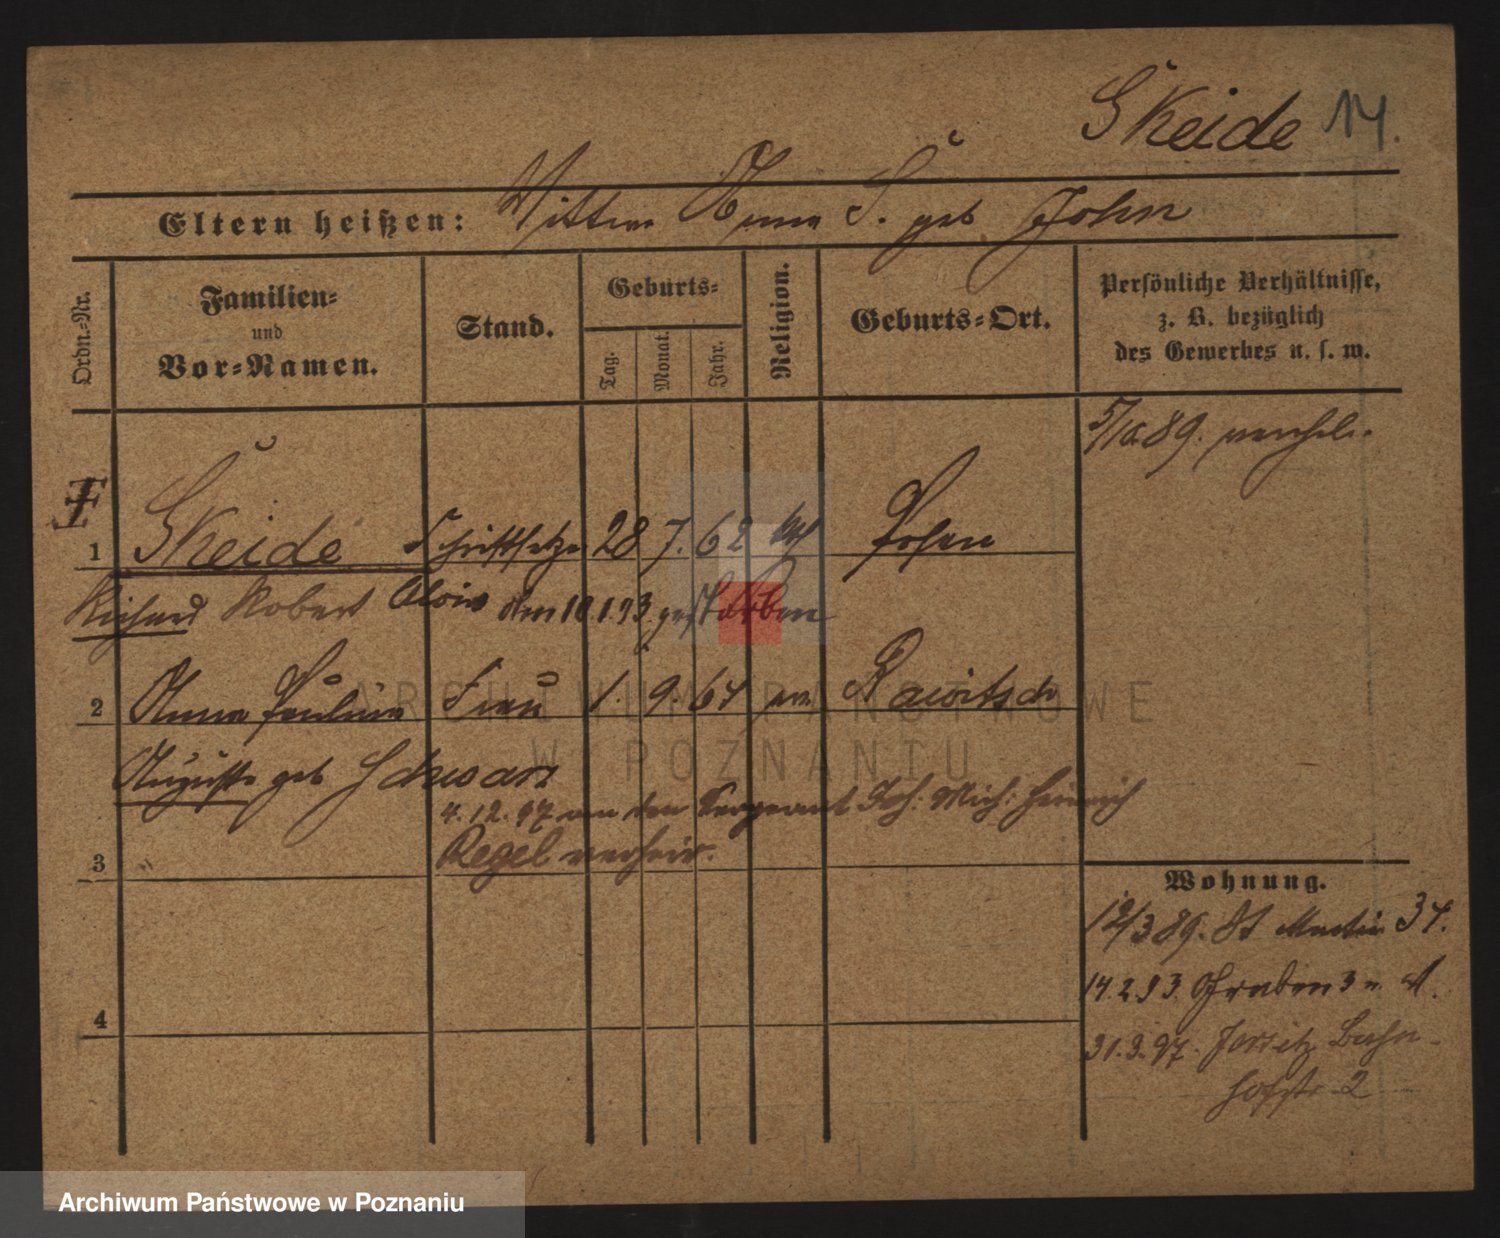 Skeide 14.
Eltern heißen: Wittwe Anna S. geb John
Ordn.-Nr.
Familien-
und
Vor-Namen.
Stand.
Geburts-
Tag.
Monat.
Jahr.
Religion.
Geburts-Ort.
Persönliche Verhältnisse,
z. B. bezüglich
des Gewerbes u. s. w.
5/10 89. verehel.
1 Skeide Schriftsetzer 28 7. 62 kth Posen
Richard Robert Alois am 10.1.93 gestorben
2 Anna Pauline Frau 1. 9. 64 ev Rawitsch
Auguste geb Schwarz
4.12.97 an den Sergeant Joh: Mich: Heinrich
3 Regel verheir.
4
Wohnung.
12/3 89. St Martin 34.
14.2.93. Graben 3 u. 4.
31.3.97. Jersitz Bahn-
hofstr 2
ARCHIWUM PAŃSTWOWE
W POZNANIU
Archiwum Państwowe w Poznaniu